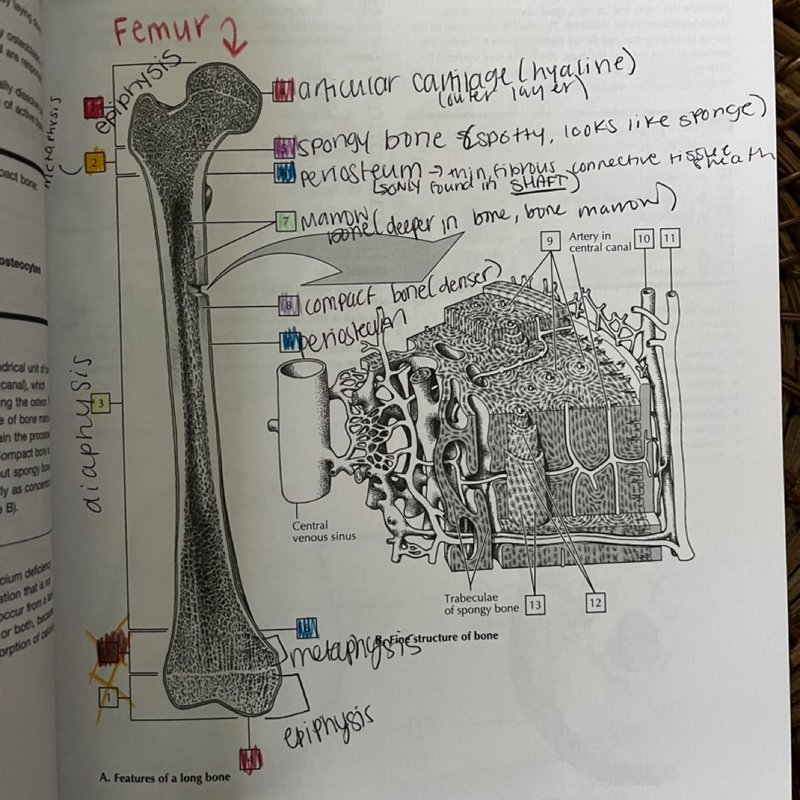 Femur
epiphysis
metaphysis
2
articular cartilage (hyaline)
(outer layer)
spongy bone (spotty, looks like sponge)
periosteum → thin, fibrous connective tissue sheath
only found in SHAFT)
7 marrow
bone (deeper in bone, bone marrow)
9
Artery in
central canal
10
11
8 compact bone (denser)
diaphysis
3
Central
venous sinus
Trabeculae
of spongy bone
13
12
B. Fine structure of bone
metaphysis
1
epiphysis
A. Features of a long bone
pact bone:
osteocytes
canal), which
ng the osteon
e of bone
ain the
ompact bone
ut spongy
ly as
e B).
occur from a
or both,
orption of